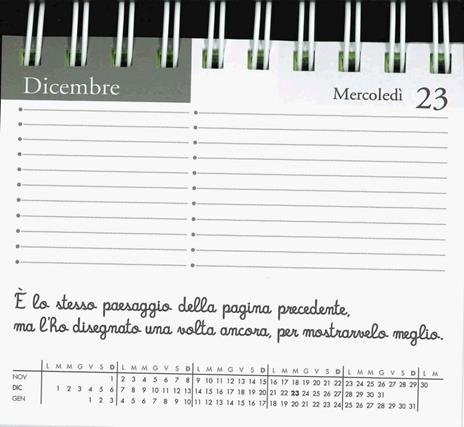 Dicembre
Mercoledì 23
È lo stesso paesaggio della pagina precedente,
ma l'ho disegnato una volta ancora, per mostrarvelo meglio.
L M M G V S D L M M G V S D L M M G V S D L M M G V S D L M M G V S D L M
NOV 1 2 3 4 5 6 7 8 9 10 11 12 13 14 15 16 17 18 19 20 21 22 23 24 25 26 27 28 29 30
DIC 1 2 3 4 5 6 7 8 9 10 11 12 13 14 15 16 17 18 19 20 21 22 23 24 25 26 27 28 29 30 31
GEN 1 2 3 4 5 6 7 8 9 10 11 12 13 14 15 16 17 18 19 20 21 22 23 24 25 26 27 28 29 30 31